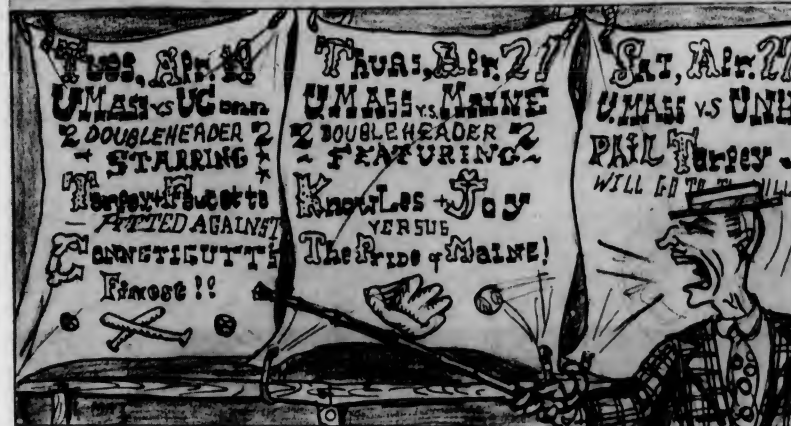 Tues, Apr.
UMass vs UConn
2 DOUBLEHEADER 2
STARRING
Torpey + Faucette
PITTED AGAINST
CONNETICUTT'S
Finest !!
Thurs, Apr. 21
UMASS v.s. MAINE
2 DOUBLEHEADER 2
~ FEATURING ~
Knowles + Joy
VERSUS
The Pride of Maine!
Sat, Apr.
UMASS vs UNH
PHIL Tarpey
WILL GO TO